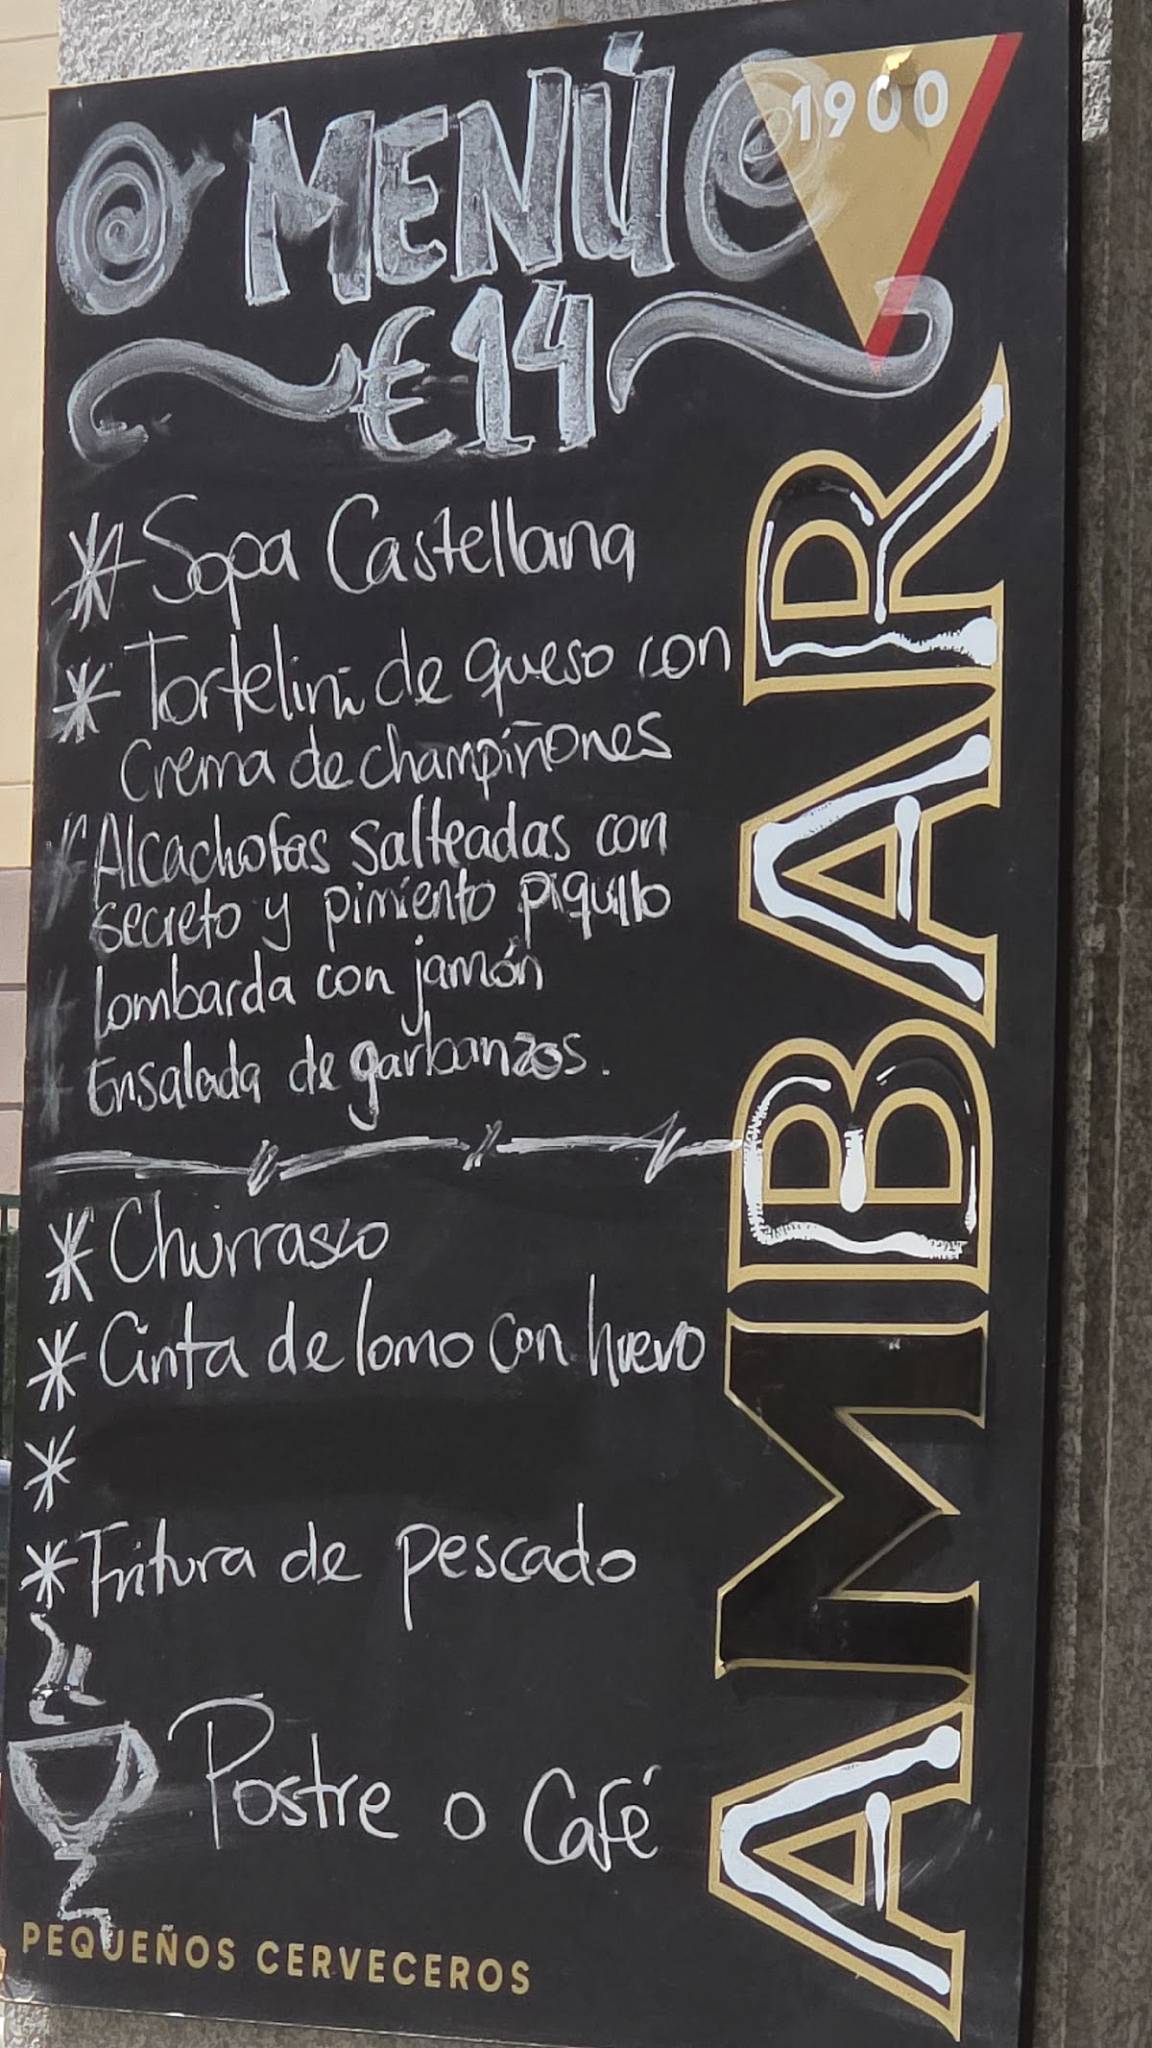 MENÚ
€14
1900
* Sopa Castellana
* Tortelini de queso con
Crema de champiñones
* Alcachofas salteadas con
secreto y pimiento piquillo
* Lombarda con jamón
* Ensalada de garbanzos.
* Churrasco
* Cinta de lomo con huevo
*
* Fritura de pescado
Postre o Café
PEQUEÑOS CERVECEROS
AMBAR